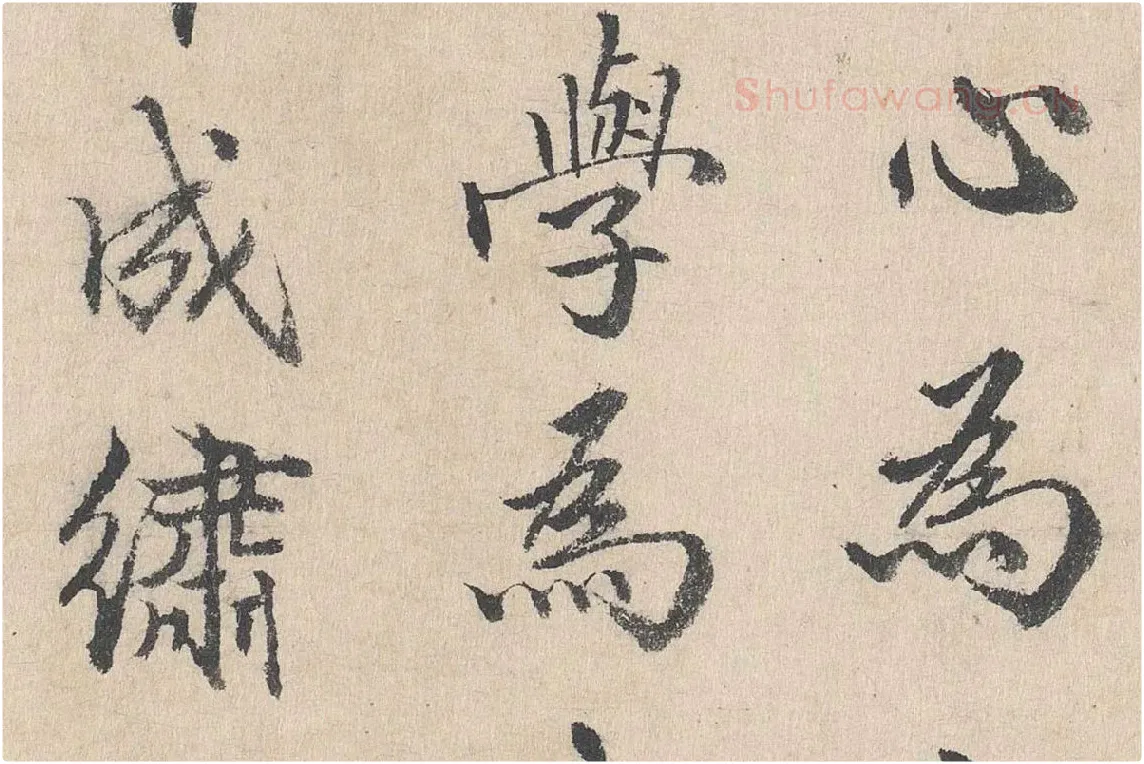 心為
學為
成繡
Shufawang.CN